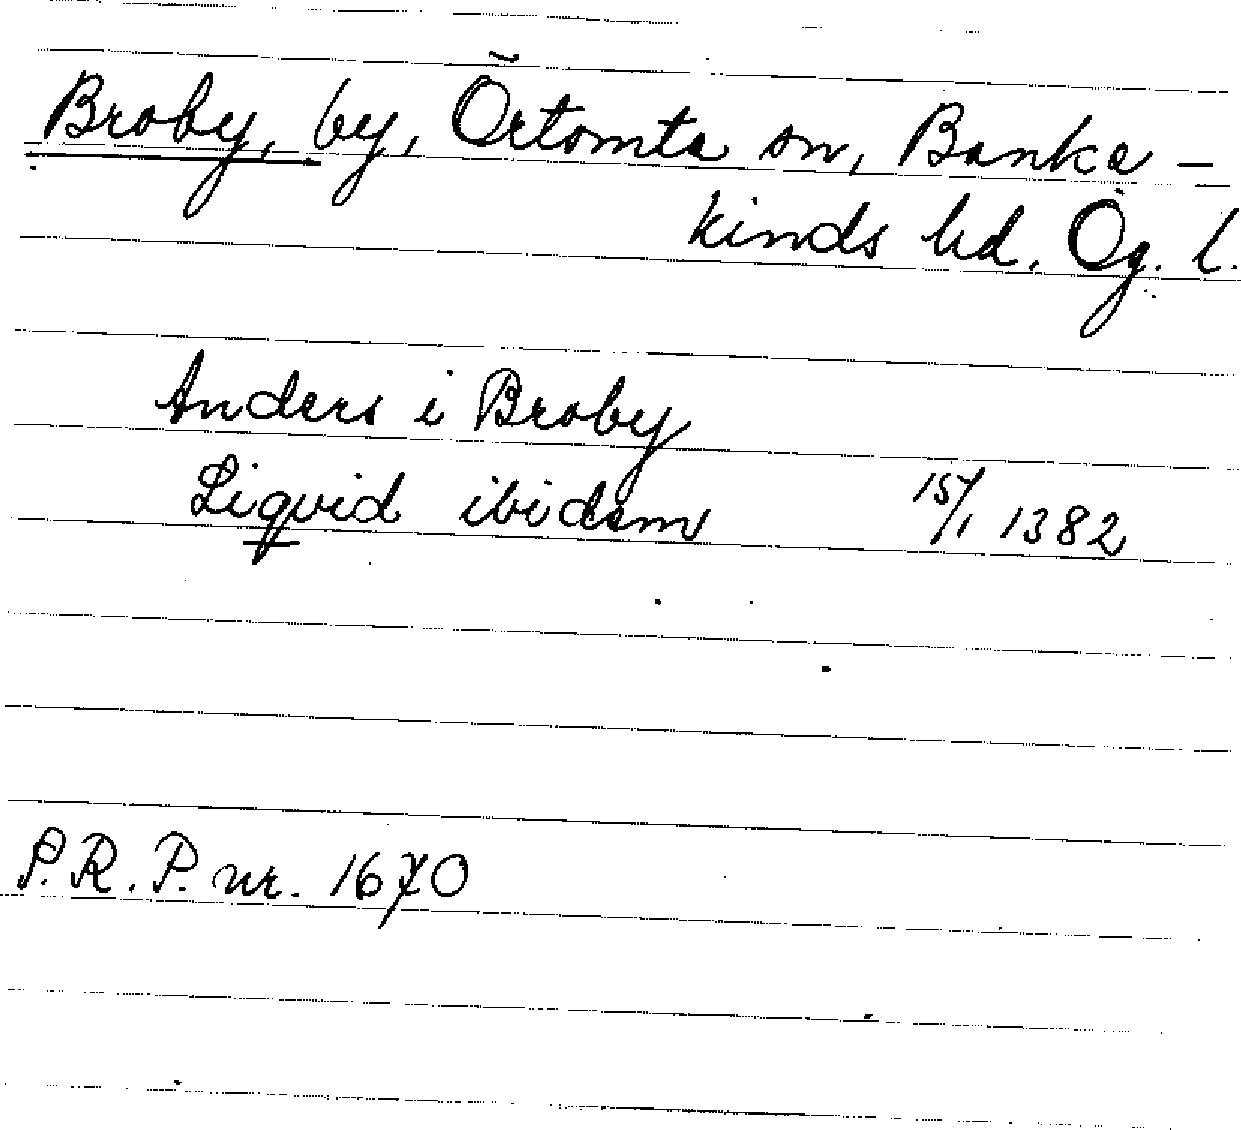 Broby, by, Örtomta sn, Banke-
kinds hd. Ög. l.
Anders i Broby
Liqvid ibidem 15/1 1382
P.R.P. nr. 1670